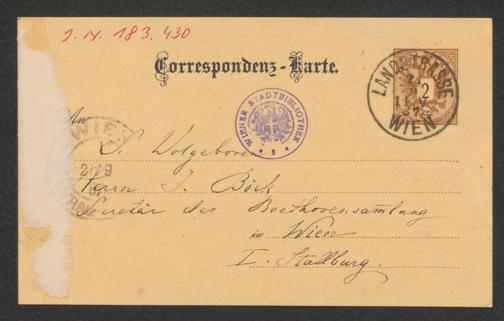 J. N. 183.430
Correspondenz-Karte.
LANDSTRASSE
WIEN
2
WIENER STADTBIBLIOTHEK
WIEN
An
Sr. Wolgeboren
Herrn J. Böck
Secretär der Beethovensamlung
in Wien
I. Stallburg.